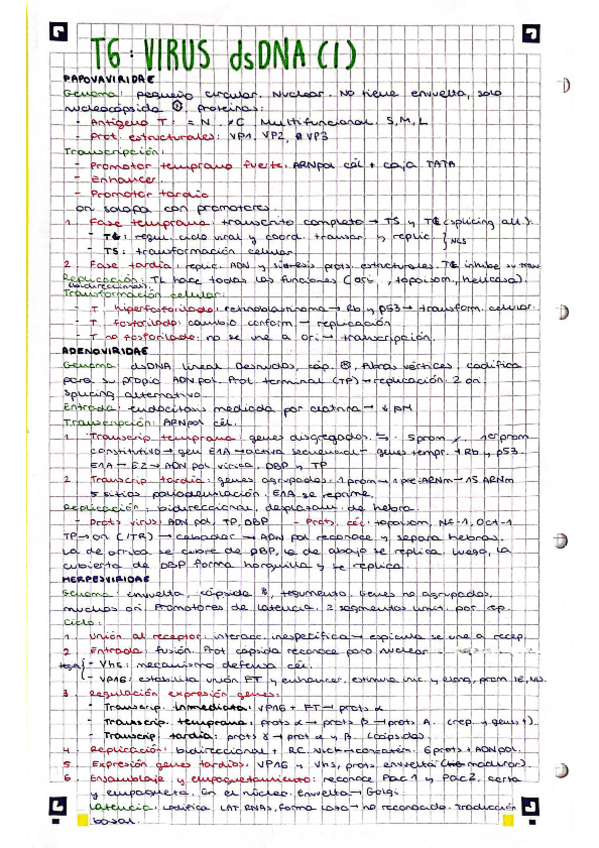 T6: VIRUS dsDNA (1)
PAPOVAVIRIDAE
Genoma: pequeño circular. Nuclear. No tiene envuelta, solo
nucleocápsida proteínas:
- Antígeno T: = N, ≠C Multifuncional. S, M, L
- Prot. estructurales: VP1, VP2, VP3
Transcripción:
- Promotor temprano fuerte: ARNpol cél + caja TATA
- Enhancer
- Promotor tardío
ori solapa con promotores.
1. Fase temprana: transcrito completo → TS y TL (splicing alt.)
- TL: regul. ciclo viral y coord. transcr. y replic. } NLS
- TS: transformación celular
2. Fase tardía: replic. ADN y síntesis prots. estructurales. TL inhibe su trans
Replicación: TL hace todas las funciones (ori, topoisom., helicasa).
(bidireccional)
Transformación celular:
- T. hiperfosforilado: retinoblastoma → Rb y p53 → transform. celular.
- T. fosforilado: cambio conform → replicación
- T no fosforilado: no se une a ori → transcripción.
ADENOVIRIDAE
Genoma: dsDNA lineal. Desnudos, cáp. Fibras vértices, codifica
para su propia ADN pol. Prot. terminal (TP) → replicación. 2 ori.
Splicing alternativo.
Entrada: endocitosis mediada por clatrina → ↓ pH
Transcripción: ARNpol cél.
1. Transcrip temprana: genes disgregados. 5 prom 1er prom
constitutivo → gen E1A → activa secuencial genes tempr. + Rb y p53.
E1A — E2 → ADN pol vírica, DBP y TP
2. Transcrip tardía: genes agrupados. 1 prom → 1 pre-ARNm — 15 ARNm
5 sitios poliadenilación. E1A se reprime.
Replicación: bidireccional, desplazam. de hebra.
- Prots virus: ADN pol, TP, DBP - Prots. cél: topoisom, NF-1, Oct-1
TP → ori (ITR) → cebador → ADN pol reconoce y separa hebras.
La de arriba se cubre de DBP, la de abajo se replica. Luego, la
cubierta de DBP forma horquilla y se replica.
HERPESVIRIDAE
Genoma: envuelta, cápside, tegumento. Genes no agrupados,
muchos ori. Promotores de latencia. 2 segmentos unit. por sp.
Ciclo:
1. Unión al receptor: interacc. inespecífica → espícula se une a recep.
2. Entrada: fusión. Prot cápsida reconoce poro nuclear
- Vhs: mecanismo defensa cél.
- VP16: estabiliza unión FT y enhancer, estimula inic. y elong, prom IE,
3. Regulación expresión genes:
- Transcrip. inmediata: VP16 + FT → prots α
- Transcrip. temprana: prots α → prots β → prots A. (rep. y genes t).
- Transcrip. tardía: prots γ → prot α y β. Cápsidas.
4. Replicación: bidireccional + RC. Nick → concatén. 6 prots + ADNpol.
5. Expresión genes tardíos: VP16 y Vhs, prots envuelta (madurar).
6. Ensamblaje y empaquetamiento: reconoce Pac1 y Pac2, corta
y empaqueta. En el núcleo. Envuelta → Golgi.
Latencia: codifica LAT RNAs, forma lazo → no reconocido. Traducción
basal.